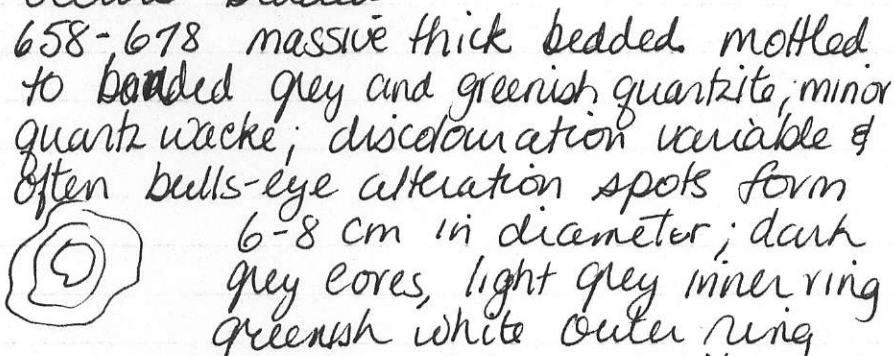 658-678 massive thick bedded mottled
to banded grey and greenish quartzite; minor
quartz wacke; discolouration variable &
often bulls-eye alteration spots form
6-8 cm in diameter; dark
grey cores, light grey inner ring
greenish white outer ring